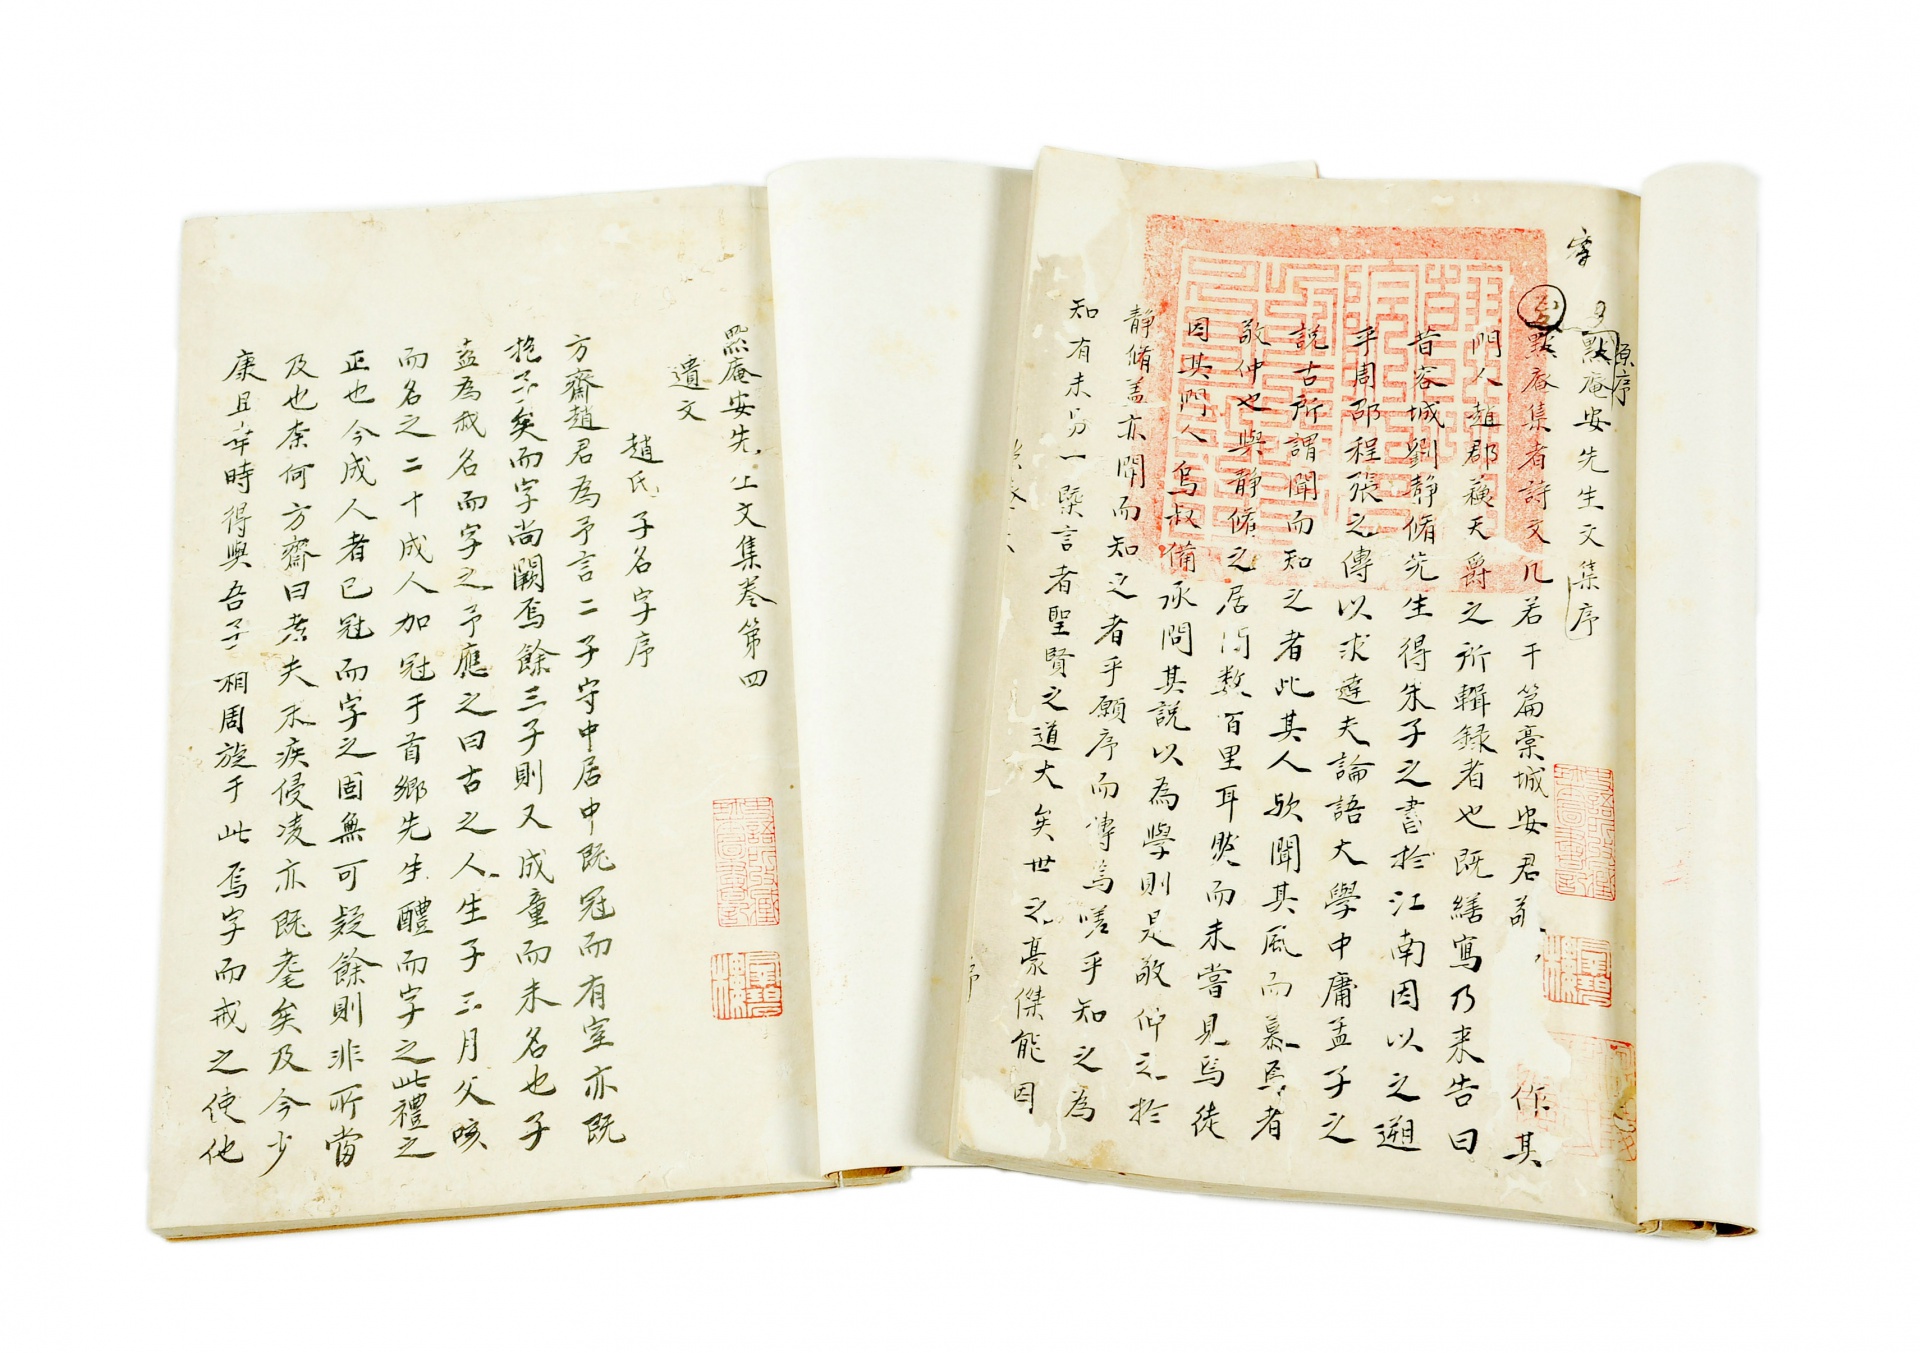 默庵安先生文集序
原序
默庵集者詩文凡若干篇藁城安君敬 作其
門人趙郡蘓天爵之所輯録者也既繕寫乃来告曰
昔容城劉靜脩先生得朱子之書扵江南因以之遡
乎周邵程張之傳以求達夫論語大學中庸孟子之
說古所謂聞而知之者此其人歟聞其風而慕焉者
敬仲也與靜脩之居間数百里耳然而未嘗見焉徒
因其門人烏叔備承問其說以為學則是敬仲之扵
靜脩盖亦聞而知之者乎願序而傳焉嗟乎知之為
知有未易一槩言者聖賢之道大矣世之豪傑能因
默庵安先生文集卷第四
遺文
趙氏子名字序
方齋趙君為予言二子守中居中既冠而有室亦既
抱子矣而字尚闕焉餘三子則又成童而未名也子
盍為我名而字之予應之曰古之人生子三月父咳
而名之二十成人加冠于首鄉先生醴而字之此禮之
正也今成人者已冠而字之固無可疑餘則非所當
及也柰何方齋曰老夫末疾侵凌亦既耄矣及今少
康且幸時得與吾子相周旋于此焉字而戒之使他